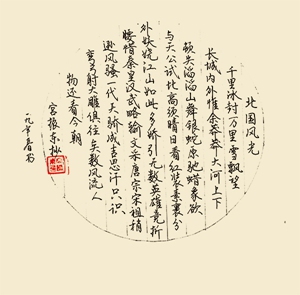 北国风光
千里冰封万里雪飘望
长城内外惟余莽莽大河上下
顿失滔滔山舞银蛇原驰蜡象欲
与天公试比高须晴日看红装素裹分
外妖娆江山如此多娇引无数英雄竞折
腰惜秦皇汉武略输文采唐宗宋祖稍
逊风骚一代天骄成吉思汗只识
弯弓射大雕俱往矣数风流人
物还看今朝